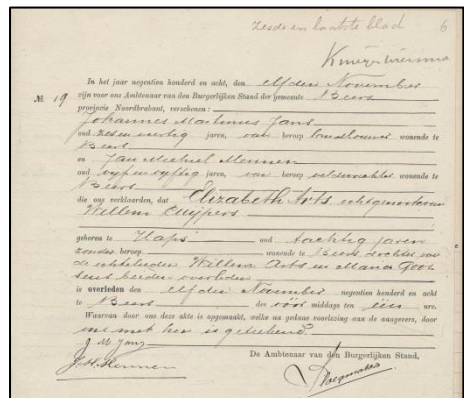 Zesde en laatste blad 6
In het jaar negentien honderd en acht, den elfden November
№ 19 zijn voor ons Ambtenaar van den Burgerlijken Stand der gemeente Beers
provincie Noordbrabant, verschenen:
Johannes Martinus Jans
oud zesenveertig jaren, van beroep landbouwer wonende te
Beers
en Jan Michiel Mennen
oud vijfenvijftig jaren, van beroep veldwachter wonende te
Beers
die ons verklaarden, dat Elizabeth Arts echtgenoote van
Willem Cuypers
geboren te Haps oud tachtig jaren
zonder beroep wonende te Beers dochter van
de echtelieden Willem Arts en Maria Goos
sens beiden overleden
is overleden den elfden November negentien honderd en acht
te Beers des vóór middags ten één ure.
Waarvan door ons deze akte is opgemaakt, welke na gedane voorlezing aan de aangevers, door
ons met hen is geteekend.
J M Jans
De Ambtenaar van den Burgerlijken Stand,
J. M. Mennen